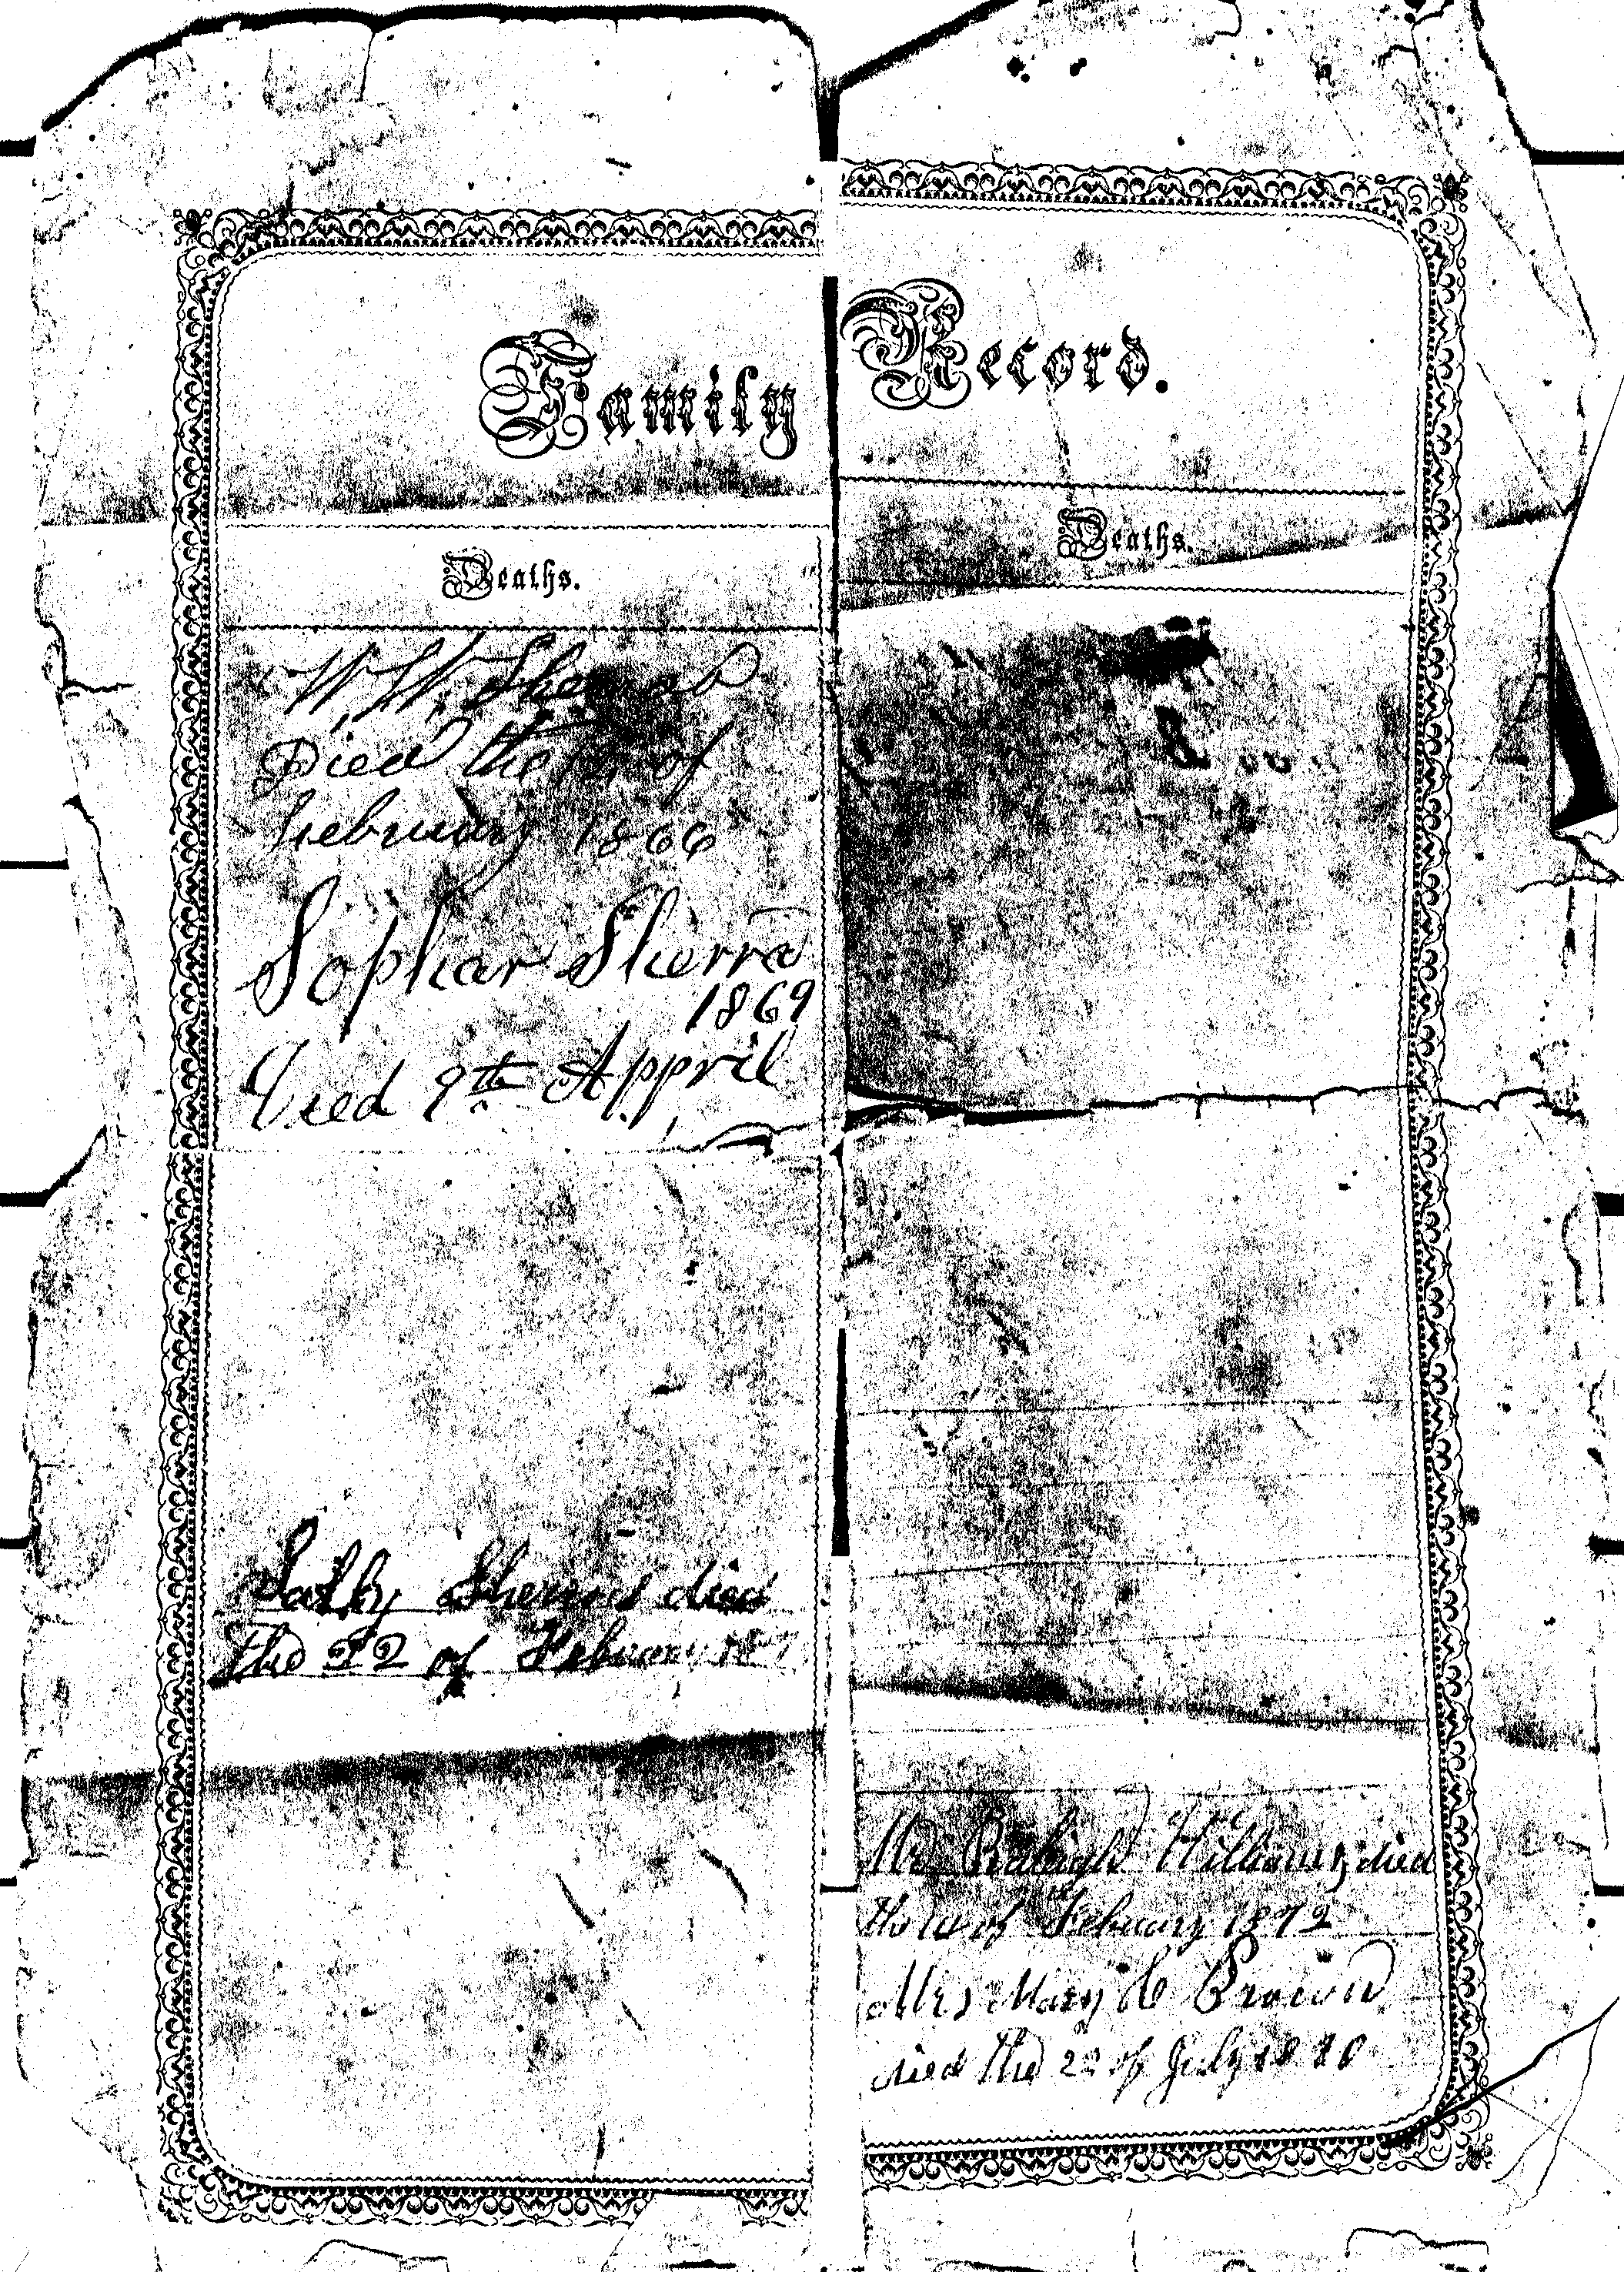 Family Record.
Deaths.
W W
Died the of
February 1866
Sophar Sherra
1869
Died 9th Appril
died
the 22 of February 187
Deaths.
Mr Raleigh Williams died
the of February 1872
Mrs Mary C Brown
died the 22 of July